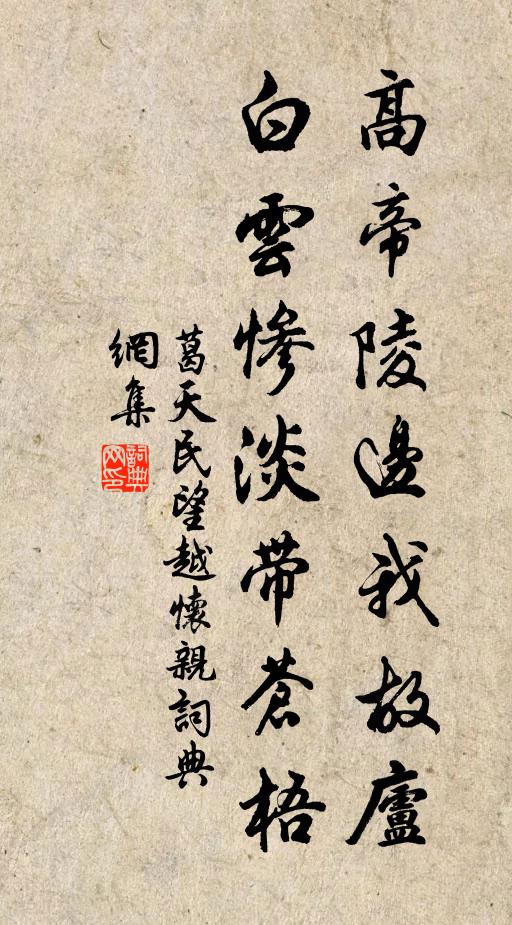 高帝陵邊我故廬
白雲慘淡带蒼梧
葛天民望越懷親詞典
網集
詞典
网印